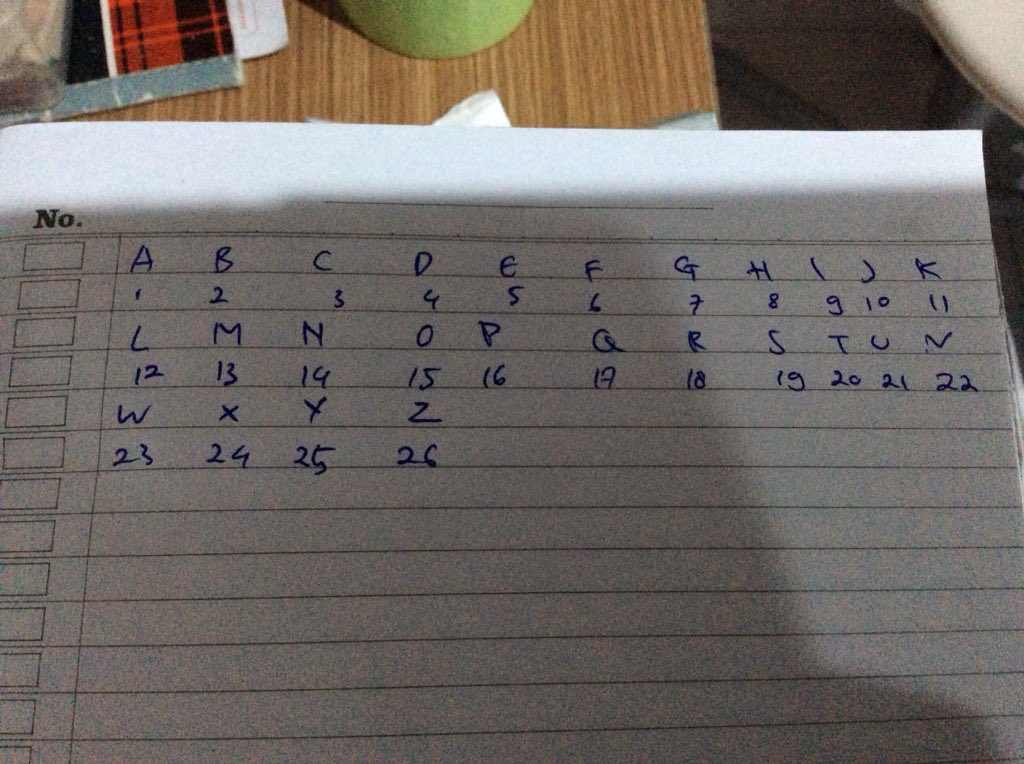 No.
A B C D E F G H I J K
1 2 3 4 5 6 7 8 9 10 11
L M N O P Q R S T U V
12 13 14 15 16 17 18 19 20 21 22
W X Y Z
23 24 25 26